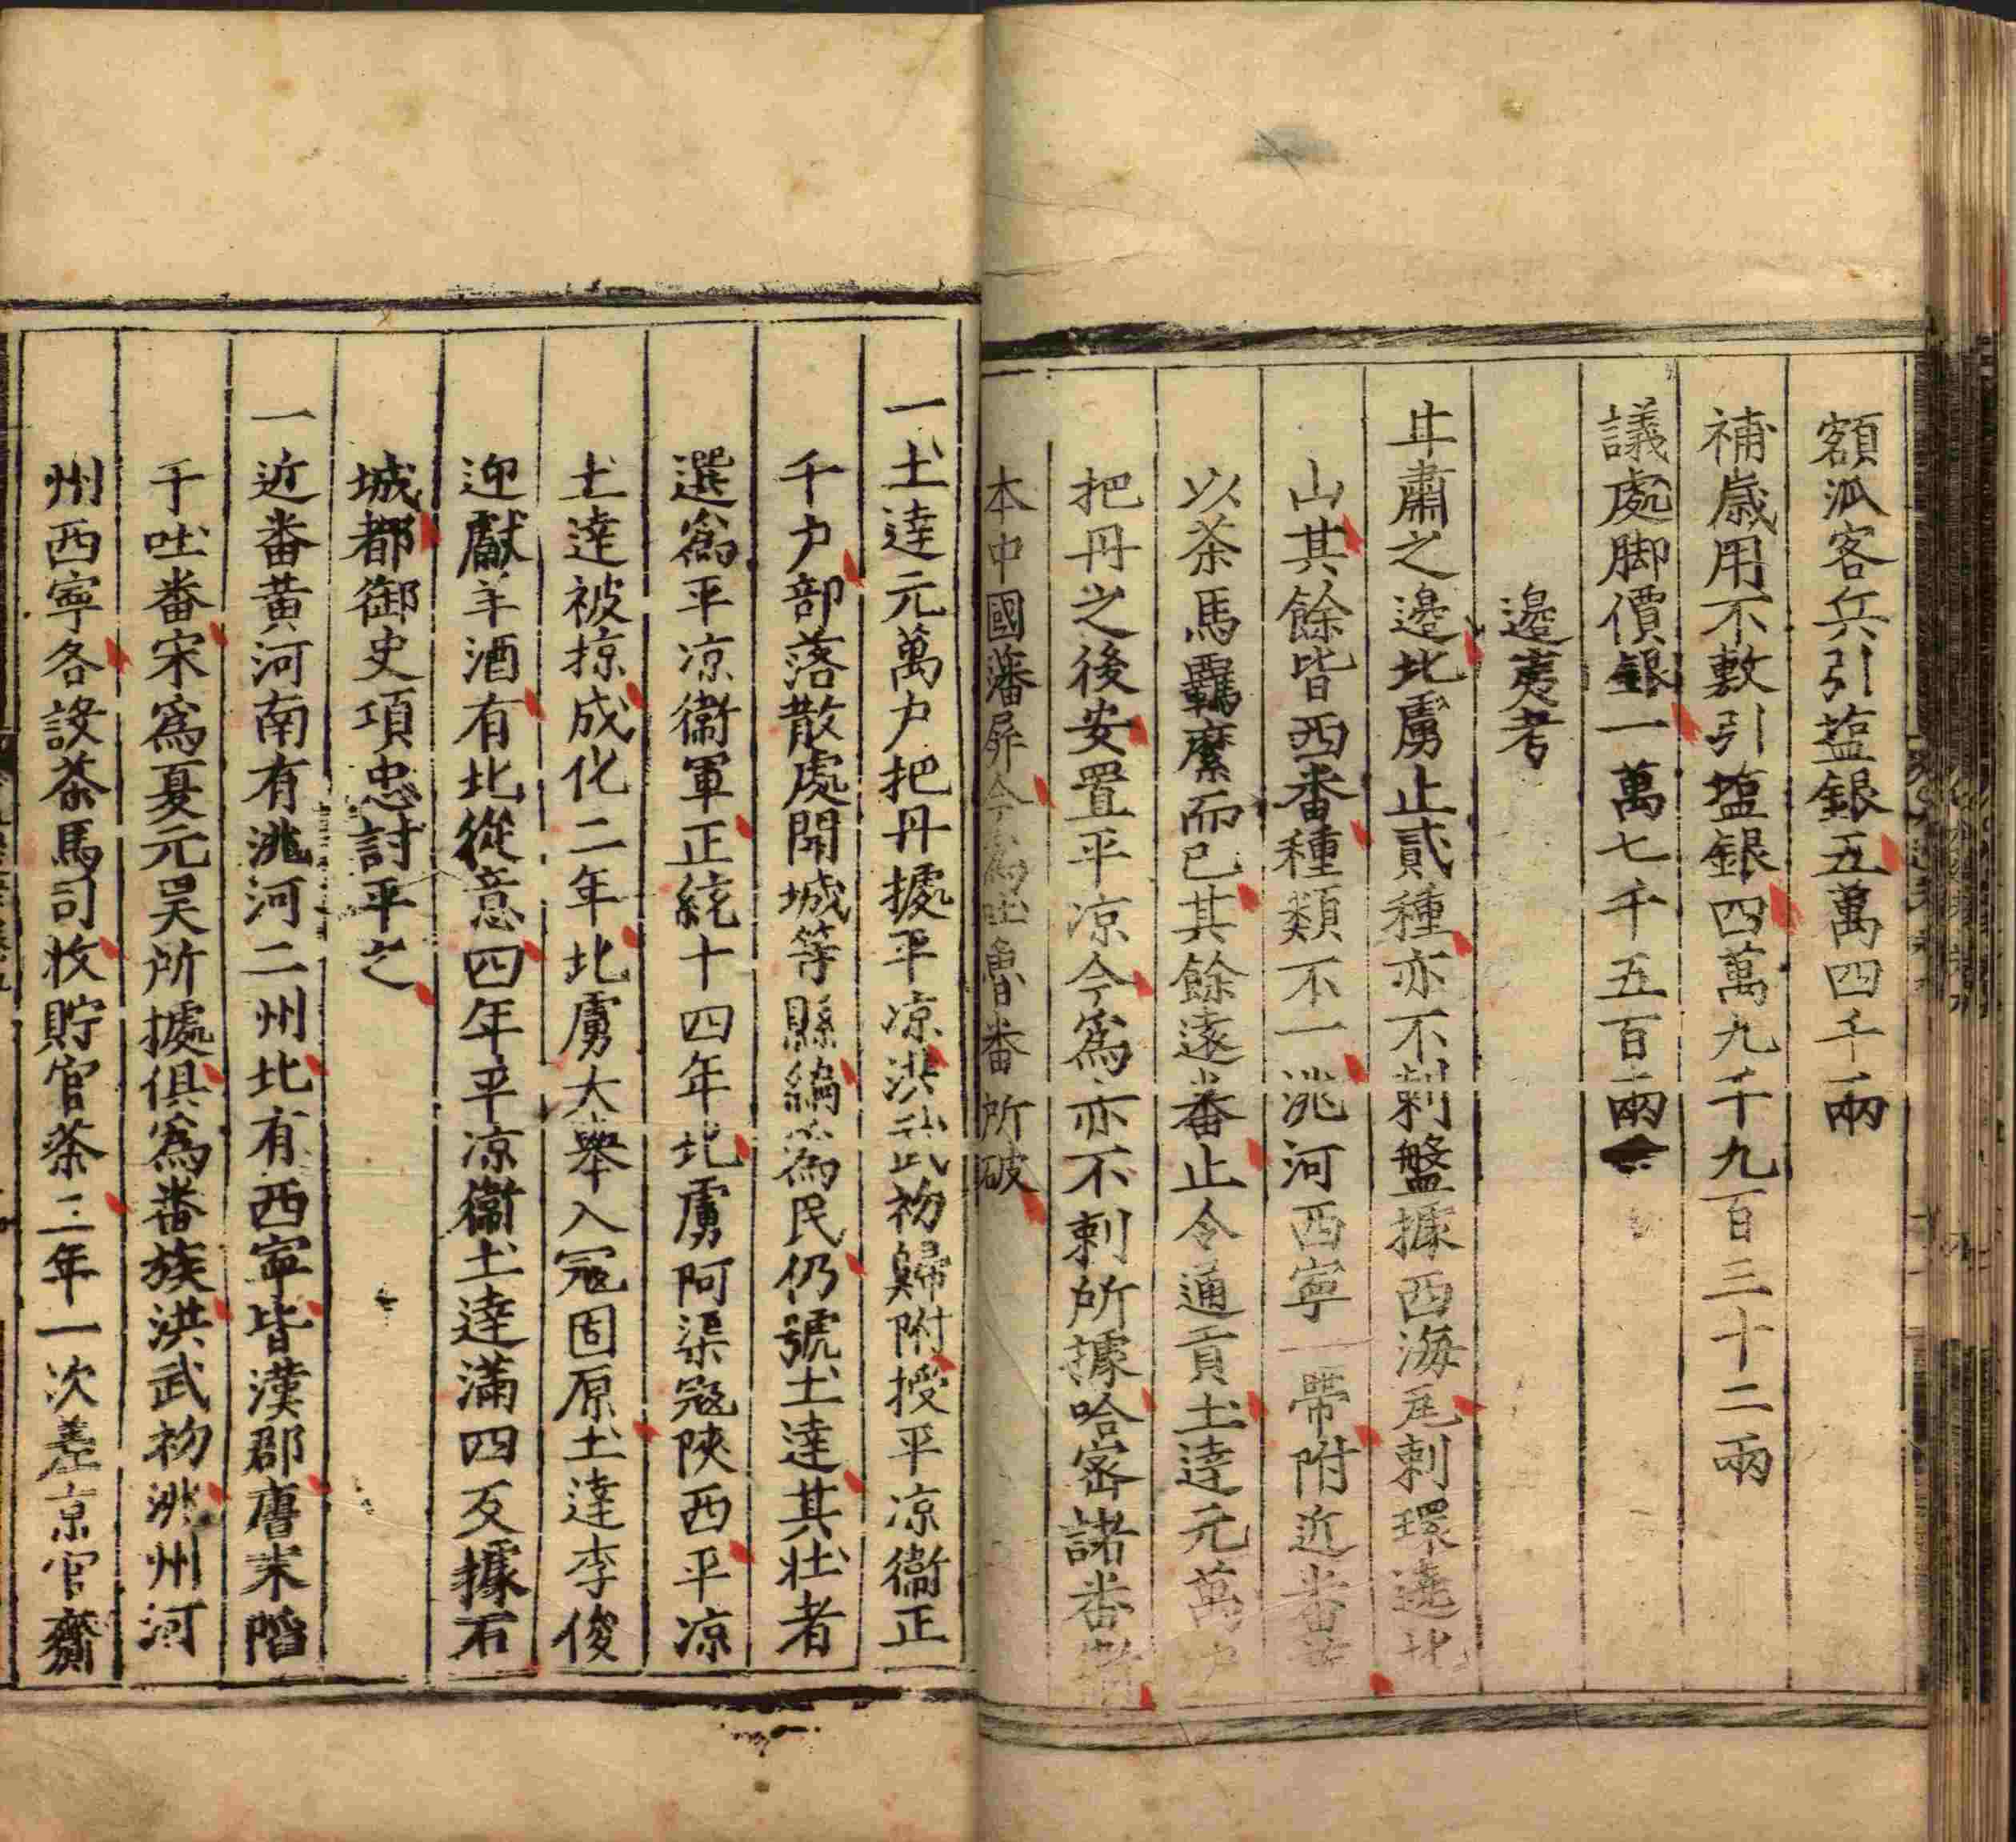 額派客兵引塩銀五萬四千兩
補歳用不敷引塩銀四萬九千九百三十二兩
議處脚價銀一萬七千五百兩
邉夷考
甘肅之邉北虜止貳種亦不剌盤據西海瓦剌環遶北
山其餘皆西番種類不一洮河西寧一帶附近番
以茶馬羈縻而已其餘遠番止令通貢土逹元萬户
把丹之後安置平凉今爲亦不剌所據哈宻諸番
本中國藩屏今爲吐魯番所破
一土逹元萬户把丹據平凉洪武初歸附授平凉衞正
千户部落散處開城等縣編爲民仍號土逹其壮者
選爲平凉衞軍正統十四年北虜阿渠冦陝西平凉
土逹被掠成化二年北虜大舉入冦固原土逹李俊
迎獻羊酒有北從意四年平凉衞土逹滿四反據石
城都御史項忠討平之
一近番黄河南有洮河二州北有西寧皆漢郡唐末䧟
于吐番宋爲夏元吴所據俱爲番族洪武初洮州河
州西寧各設茶馬司收貯官茶三年一次差京官齎